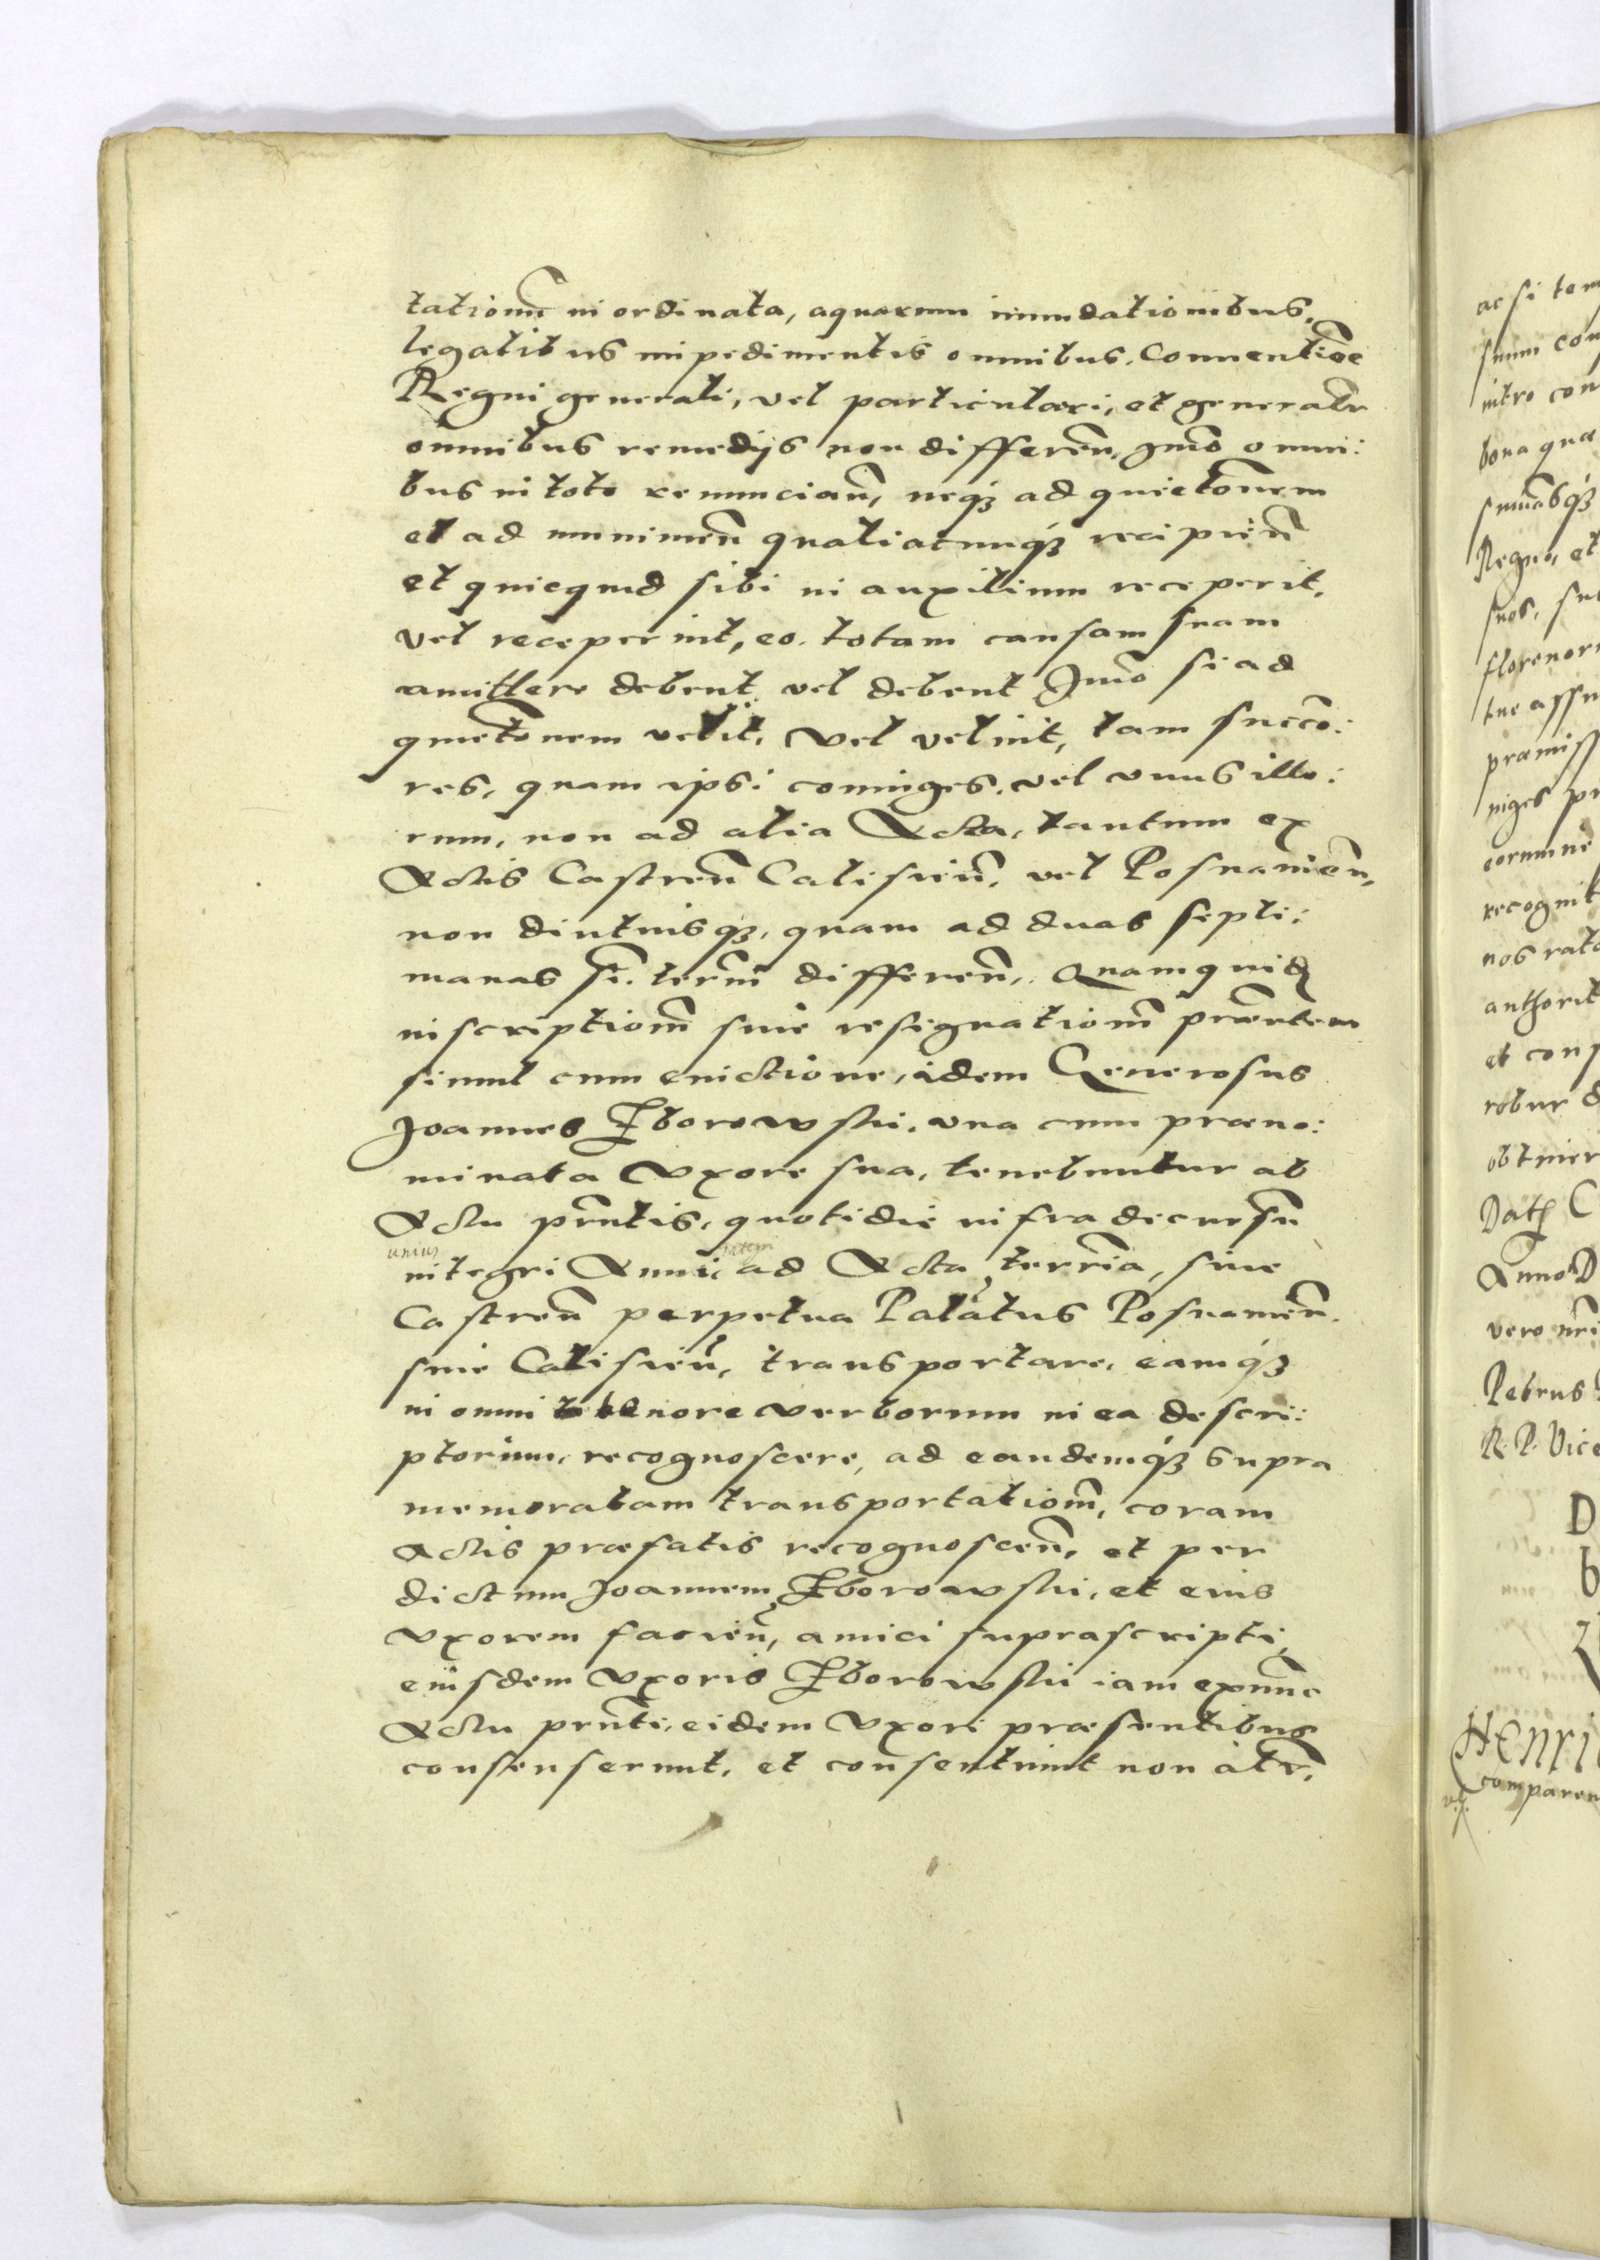 tationū in ordinata, aquarum inundationibus,
legalibus impedimentis omnibus. Conuentiōe
Regni generali, vel particulari, et generalr̄
omnibus remedijs non differen̄, Jmō omni:
bus in toto renuncian̄, neq₃ ad quietōnem
et ad munimen̄ qualiacunq₃ recipien̄
et quicquid sibi in auxilium receperit,
vel receperint, eo. totam causam suam
amittere debent vel debent Jmō si ad
quietōnem velit, vel velint, tam succō:
res, quam ipsi coniuges, vel vnus illo:
rum, non ad alia Acta, tantum ex
Actis Castren̄ Calisien̄, vel Posnanien̄,
non diutius q₃, quam ad duas septi:
manas sī. termī differen̄. Quamquid
inscriptionē siue resignationē prēntem
simul cum euictione, idem Generosus
Joannes Zborowskii, vna cum præno:
minata Vxore sua, tenebuntur ab
Actu prn̄tis, quotidie infra decursū
unius
integri Anni, ad Acta terrīa, siue
Castren̄ perpetua Palātus Posnanien̄.
siue Calisien̄, transportare, eamq₃
in omni tenore verborum in ea descri:
ptorum, recognoscere, ad eandemq₃ supra
memoratam transportationē, coram
Actis præfatis recognoscen̄, et per
dictum Joannem Zborowskii, et eius
vxorem facien̄, amici suprascripti,
eiusdem Vxoris Zborowskii iam exnunc
Actu prn̄ti, eidem Vxori præsentibus
consenserunt, et consentiunt non alr̄,
ac si
suum
intro
bona quæ
Regno, et
suos,
præmiss
recognit
et
robur
obtiner
Anno D
vero nr̄i
Petrus
R. P. Vice
D
b
Henri
comparen